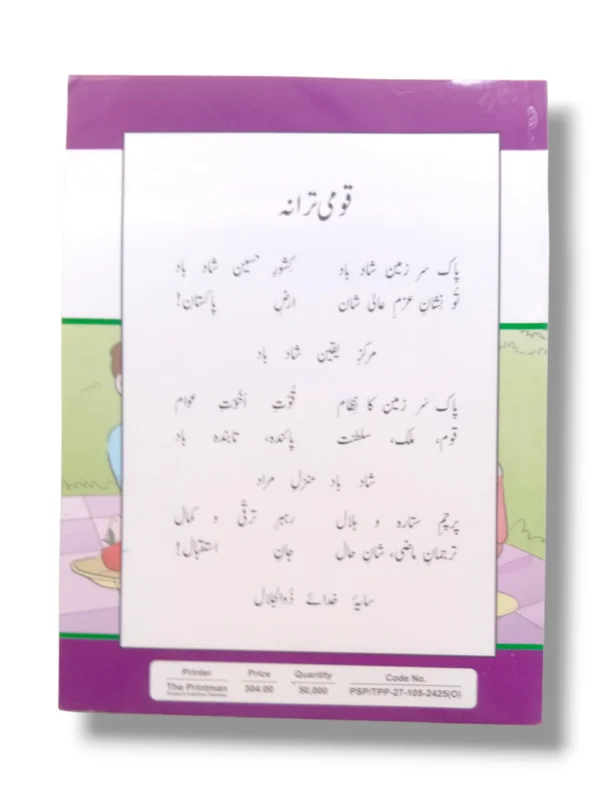 قومی ترانہ
پاک سر زمین شاد باد کِشورِ حسین شاد باد
تُو نِشانِ عزمِ عالی شان ارضِ پاکستان!
مرکزِ یقین شاد باد
پاک سَر زمین کا نِظام قُوّتِ اُخُوّتِ عوام
قوم، ملک، سلطنت پائندہ، تابندہ باد
شاد باد منزلِ مراد
پرچمِ ستارہ و ہلال رہبرِ ترقّی و کمال
ترجمانِ ماضی، شانِ حال جانِ استقبال!
سایۂ خدائے ذُوالجلال
Printer Price Quantity Code No.
The Printman 304.00 50,000 PSP/TPP-27-105-2425(O)